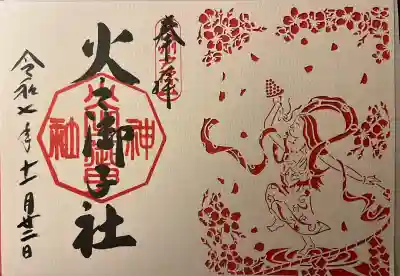 奉拝
火之御子社
神社
令和七年十一月廿二日